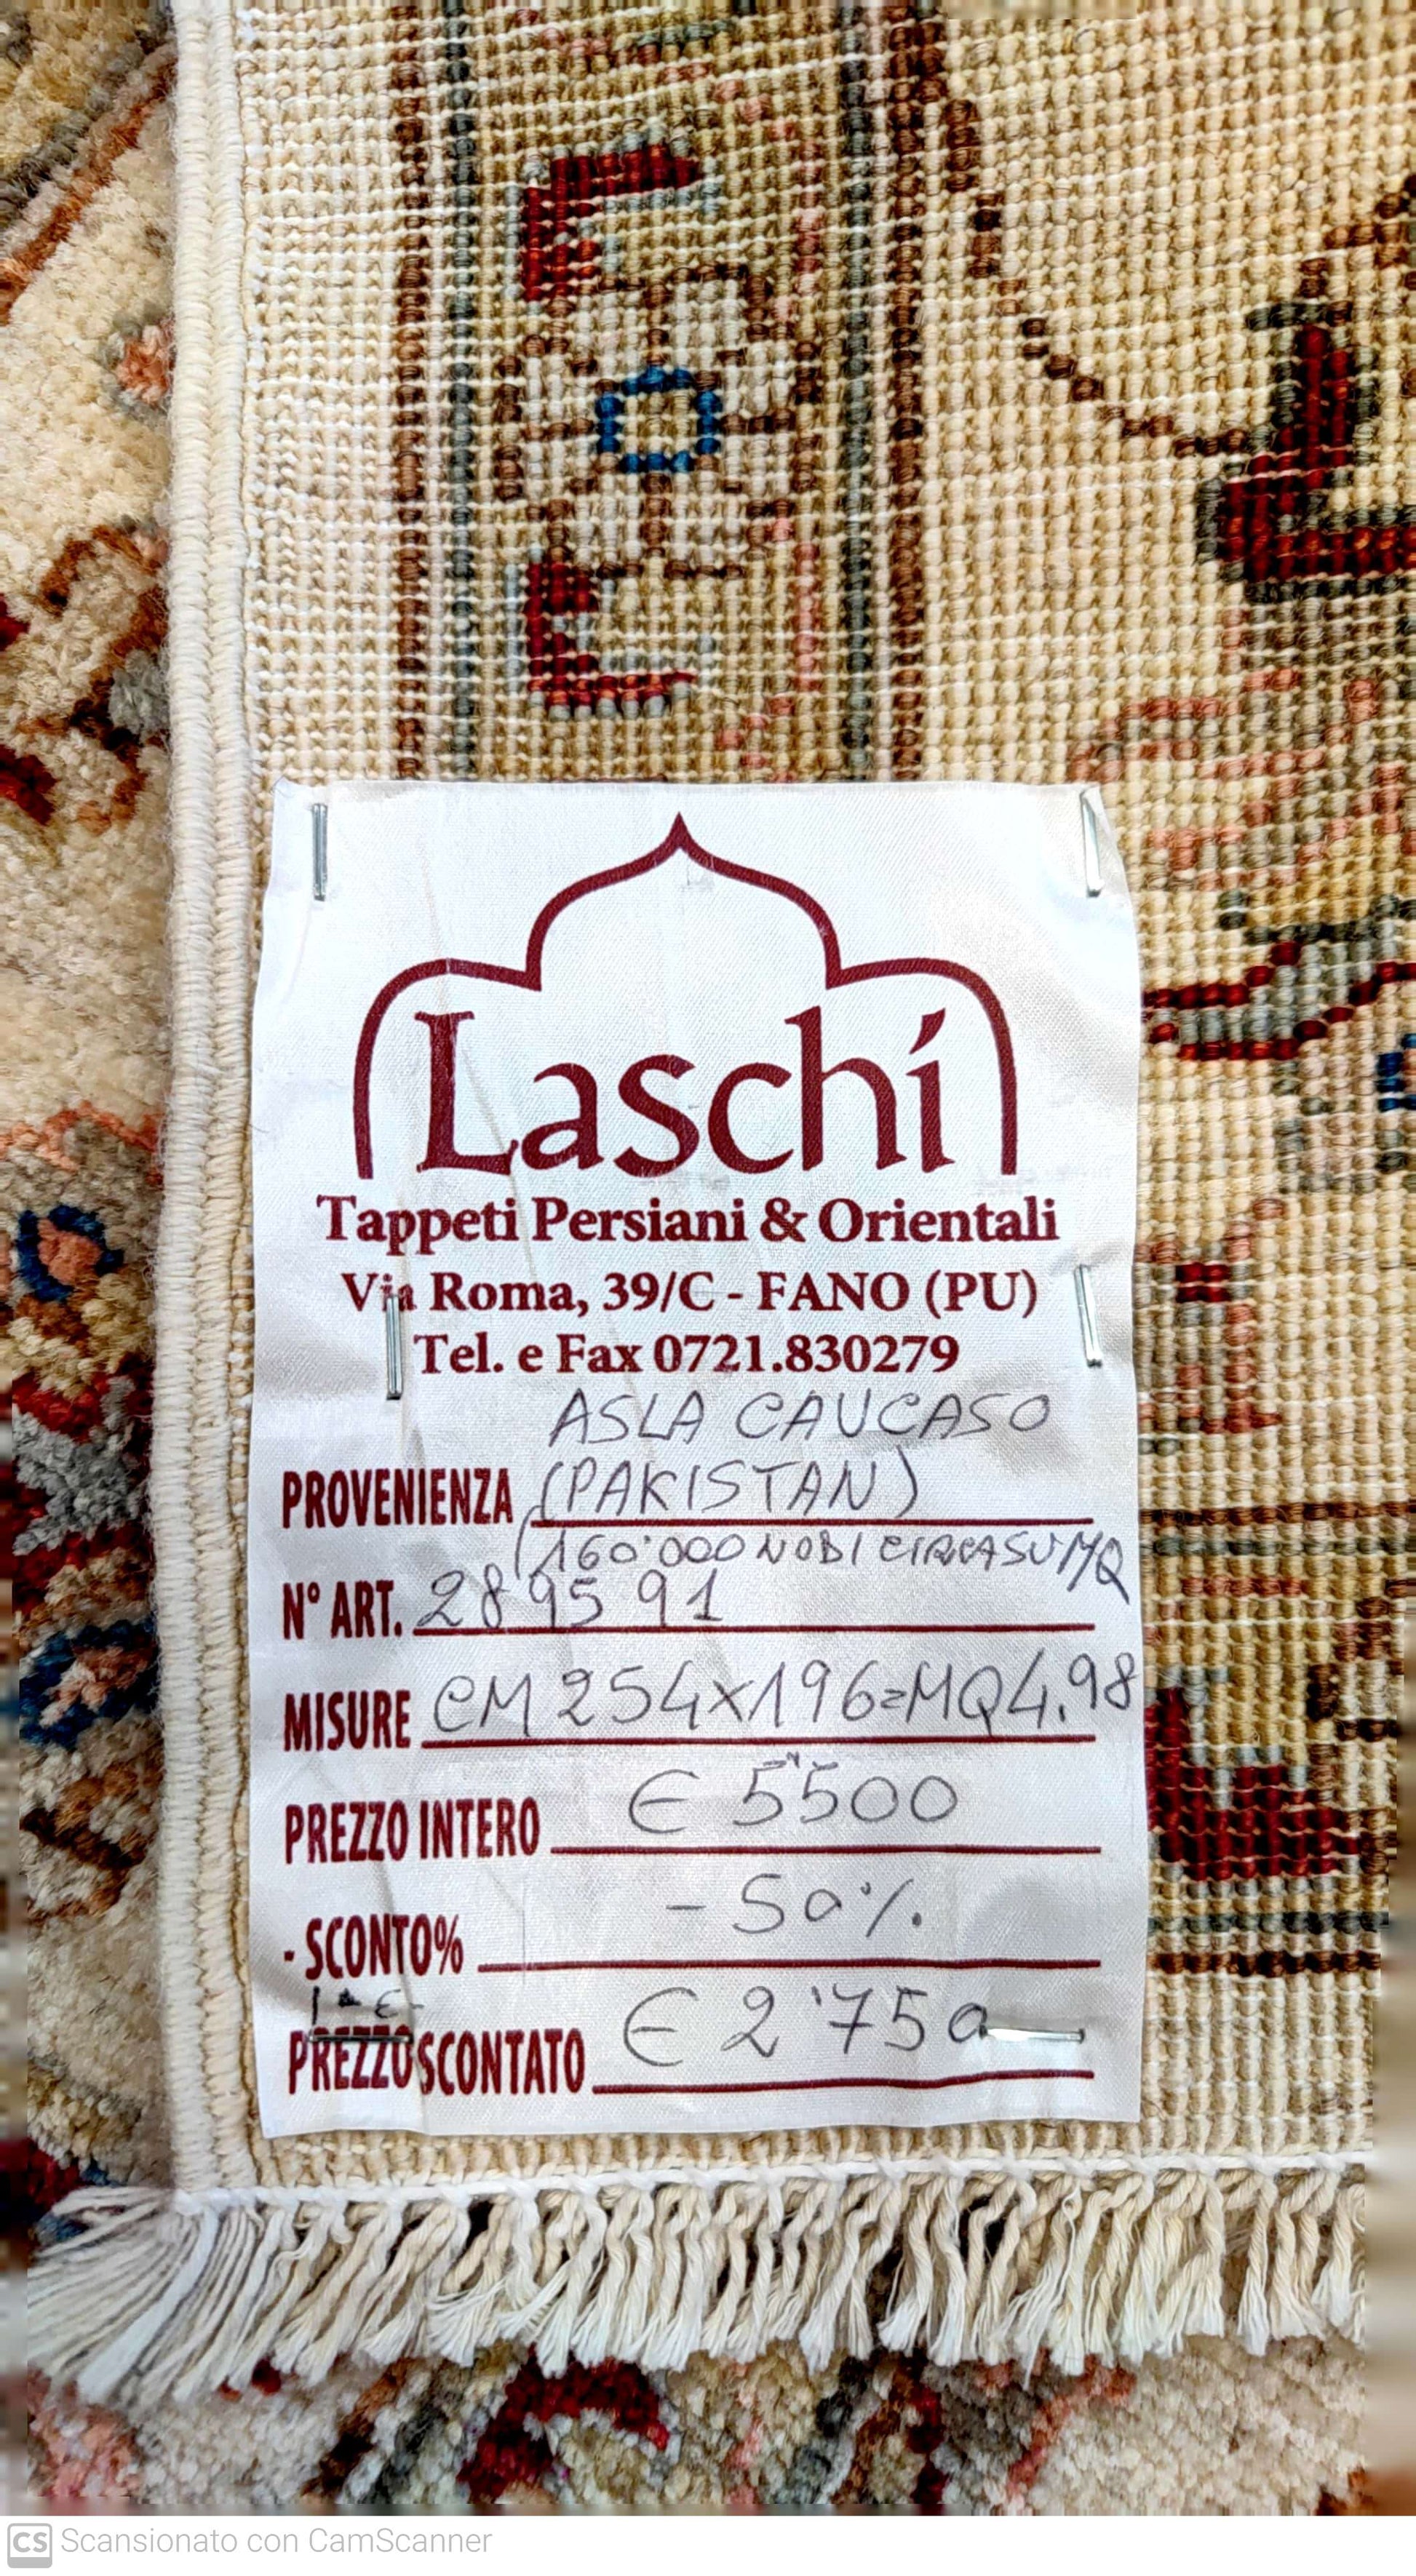 Laschi
Tappeti Persiani & Orientali
Via Roma, 39/C - FANO (PU)
Tel. e Fax 0721.830279
ASLA CAUCASO
PROVENIENZA (PAKISTAN)
(160'000 NODI CIRCA SU MQ
N° ART. 289591
MISURE CM 254x196=MQ4.98
PREZZO INTERO € 5'500
- SCONTO% -50%
PREZZO SCONTATO € 2'750
CS Scansionato con CamScanner